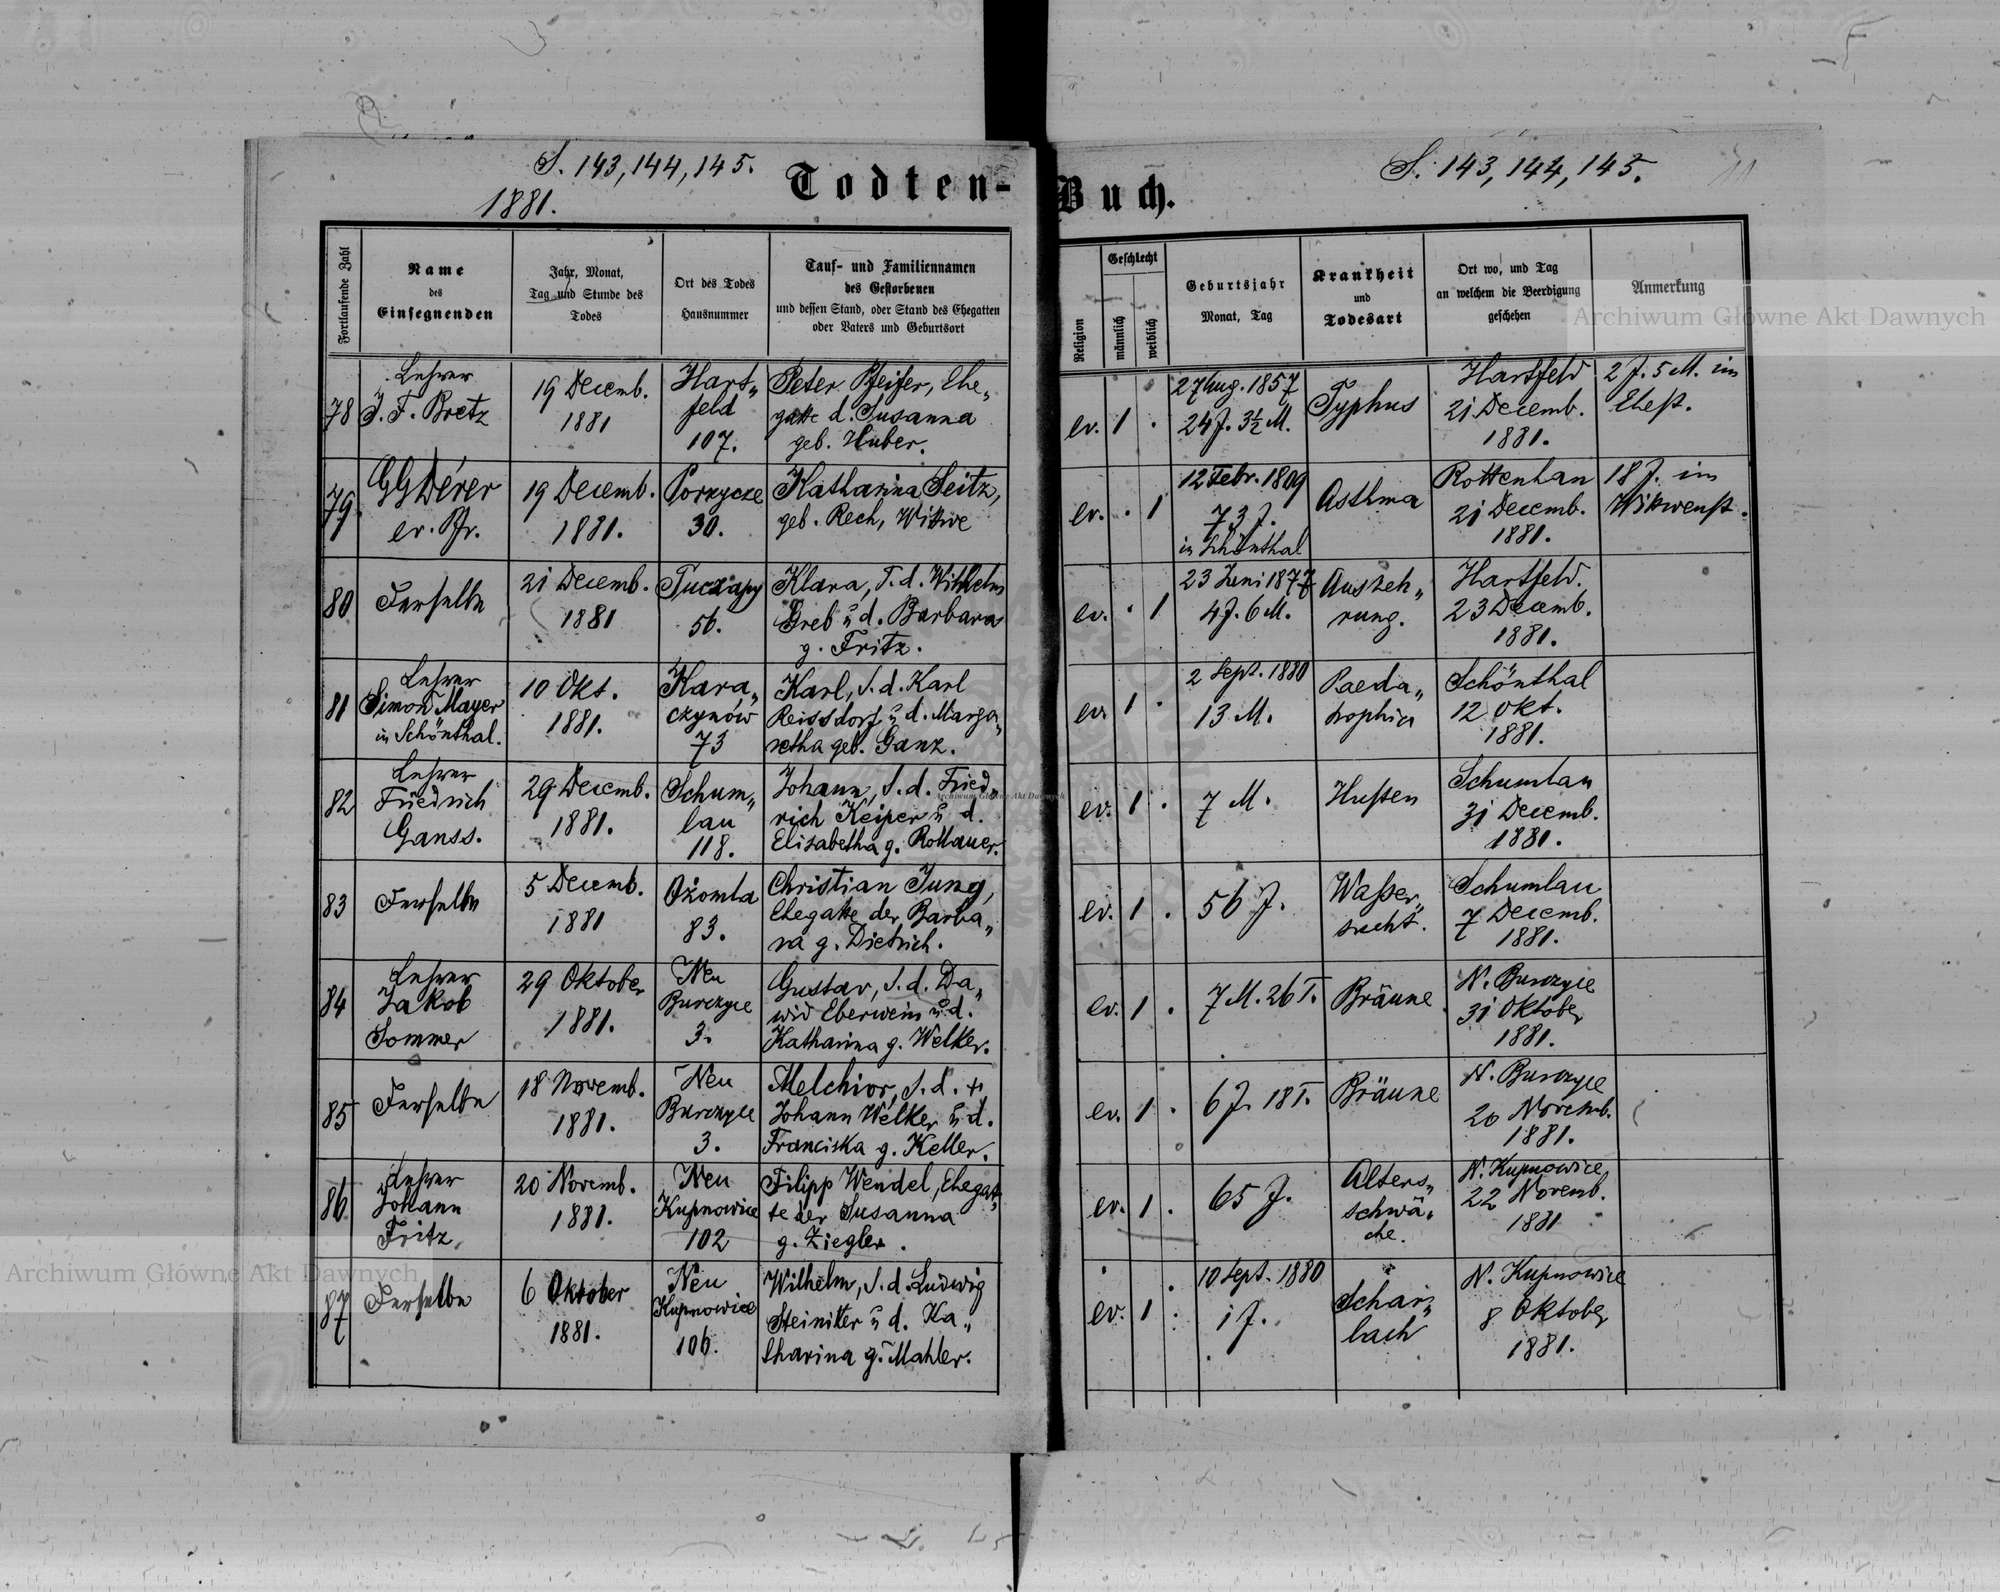 S. 143, 144, 145.
1881.
Todten-
Buch.
S. 143, 144, 145.
Fortlaufende Zahl
Name
des
Einsegnenden
Jahr, Monat,
Tag und Stunde des
Todes
Ort des Todes
Hausnummer
Tauf- und Familiennamen
des Gestorbenen
und dessen Stand, oder Stand des Ehegatten
oder Vaters und Geburtsort
Religion
Geschlecht
männlich
weiblich
Geburtsjahr
Monat, Tag
Krankheit
und
Todesart
Ort wo, und Tag
an welchem die Beerdigung
geschehen
Anmerkung
78
Lehrer
J. F. Bretz
19 Decemb.
1881
Hart„
feld
107.
Peter Pfeifer, Ehe„
gatte d. Susanna
geb. Huber.
ev. 1 .
27 Aug. 1857
24 J. 3½ M.
Typhus
Hartfeld
21 Decemb.
1881.
2 J. 5 M. im
Ehest.
79
GGDérer
ev. Pfr.
19 Decemb.
1881.
Porzycze
30.
Katharina Seitz,
geb. Rech, Witwe
ev. . 1
12 Febr. 1809
73 J.
in Schönthal
Asthma
Rottenhan
21 Decemb.
1881.
18 J. im
Witwenst.
80
Derselbe
21 Decemb.
1881
Tuczapy
56.
Klara, T. d. Wilhelm
Greb u d. Barbara
g. Fritz.
ev. . 1
23 Juni 1877
4 J. 6 M.
Auszeh„
rung.
Hartfeld.
23 Decemb.
1881.
81
Lehrer
Simon Mayer
in Schönthal.
10 Okt.
1881.
Kara„
czynów
73
Karl, S. d. Karl
Reissdorf u d. Marga„
retha geb. Ganz.
ev. 1 .
2 Sept. 1880
13 M.
Paeda„
trophia
Schönthal
12 Okt.
1881.
82
Lehrer
Friedrich
Ganss.
29 Decemb.
1881.
Schum„
lau
118.
Johann, S. d. Fried„
rich Keiper u d.
Elisabetha g. Rottauer.
ev. 1 .
7 M.
Husten
Schumlau
31 Decemb.
1881.
83
Derselbe
5 Decemb.
1881
Ożomla
83.
Christian Jung,
Ehegatte der Barba„
ra g. Dietrich.
ev. 1 .
56 J.
Wasser„
sucht.
Schumlau
7 Decemb.
1881.
84
Lehrer
Jakob
Sommer
29 Oktober
1881.
Neu
Burczyce
3.
Gustav, S. d. Da„
wid Eberwein u d.
Katharina g. Welker.
ev. 1 .
7 M. 26 T.
Bräune
N. Burczyce
31 Oktober
1881.
85
Derselbe
18 Novemb.
1881.
Neu
Burczyce
3.
Melchior, S. d. +
Johann Welker u d.
Franciska g. Keller.
ev. 1 .
6 J. 18 T.
Bräune
N. Burczyce
20 Novemb.
1881.
86
Lehrer
Johann
Fritz.
20 Novemb.
1881.
Neu
Kupnowice
102
Filipp Wendel, Ehegat„
te der Susanna
g. Ziegler.
ev. 1 .
65 J.
Alters„
schwä„
che.
N. Kupnowice
22 Novemb.
1881
87
Derselbe
6 Oktober
1881.
Neu
Kupnowice
106.
Wilhelm, S. d. Ludwig
Steinitler u d. Ka„
tharina g. Mahler.
ev. 1 .
10 Sept. 1880
1 J.
Schar„
lach
N. Kupnowice
8 Oktober
1881.
Archiwum Główne Akt Dawnych
Archiwum Główne Akt Dawnych
Archiwum Główne Akt Dawnych